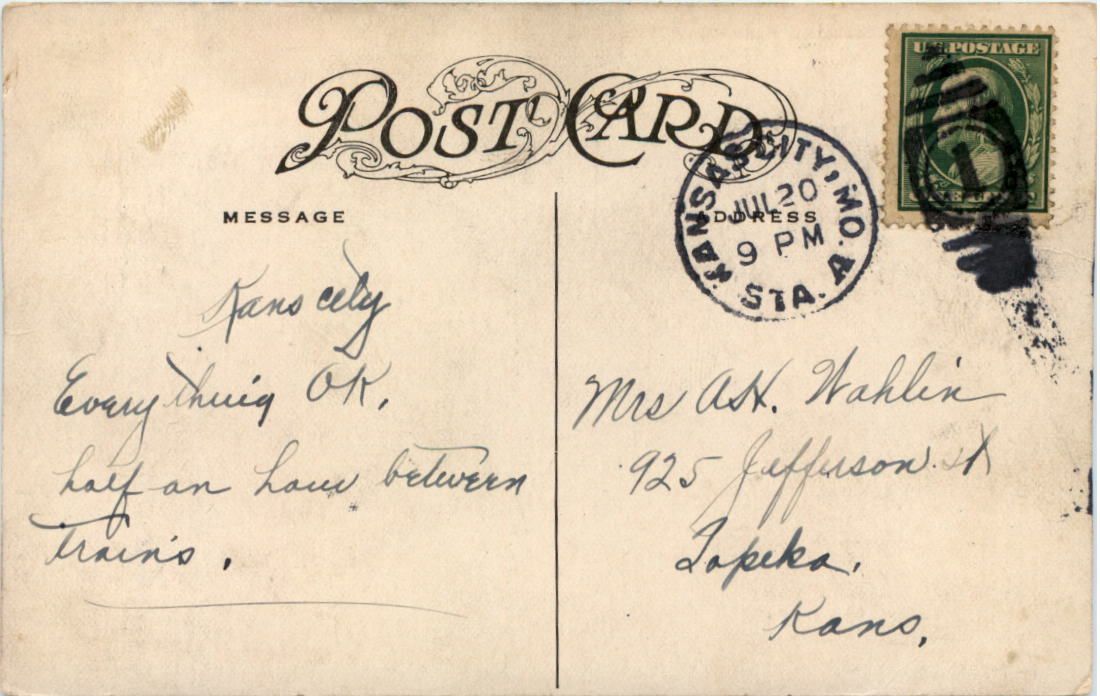 POST CARD
U.S. POSTAGE
KANSAS CITY, MO.
JUL 20
9 PM
STA. A
1
MESSAGE
ADDRESS
Kans city
Everything OK.
half an hour between
trains.
Mrs A.H. Wahlin
925 Jefferson st
Topeka.
Kans.